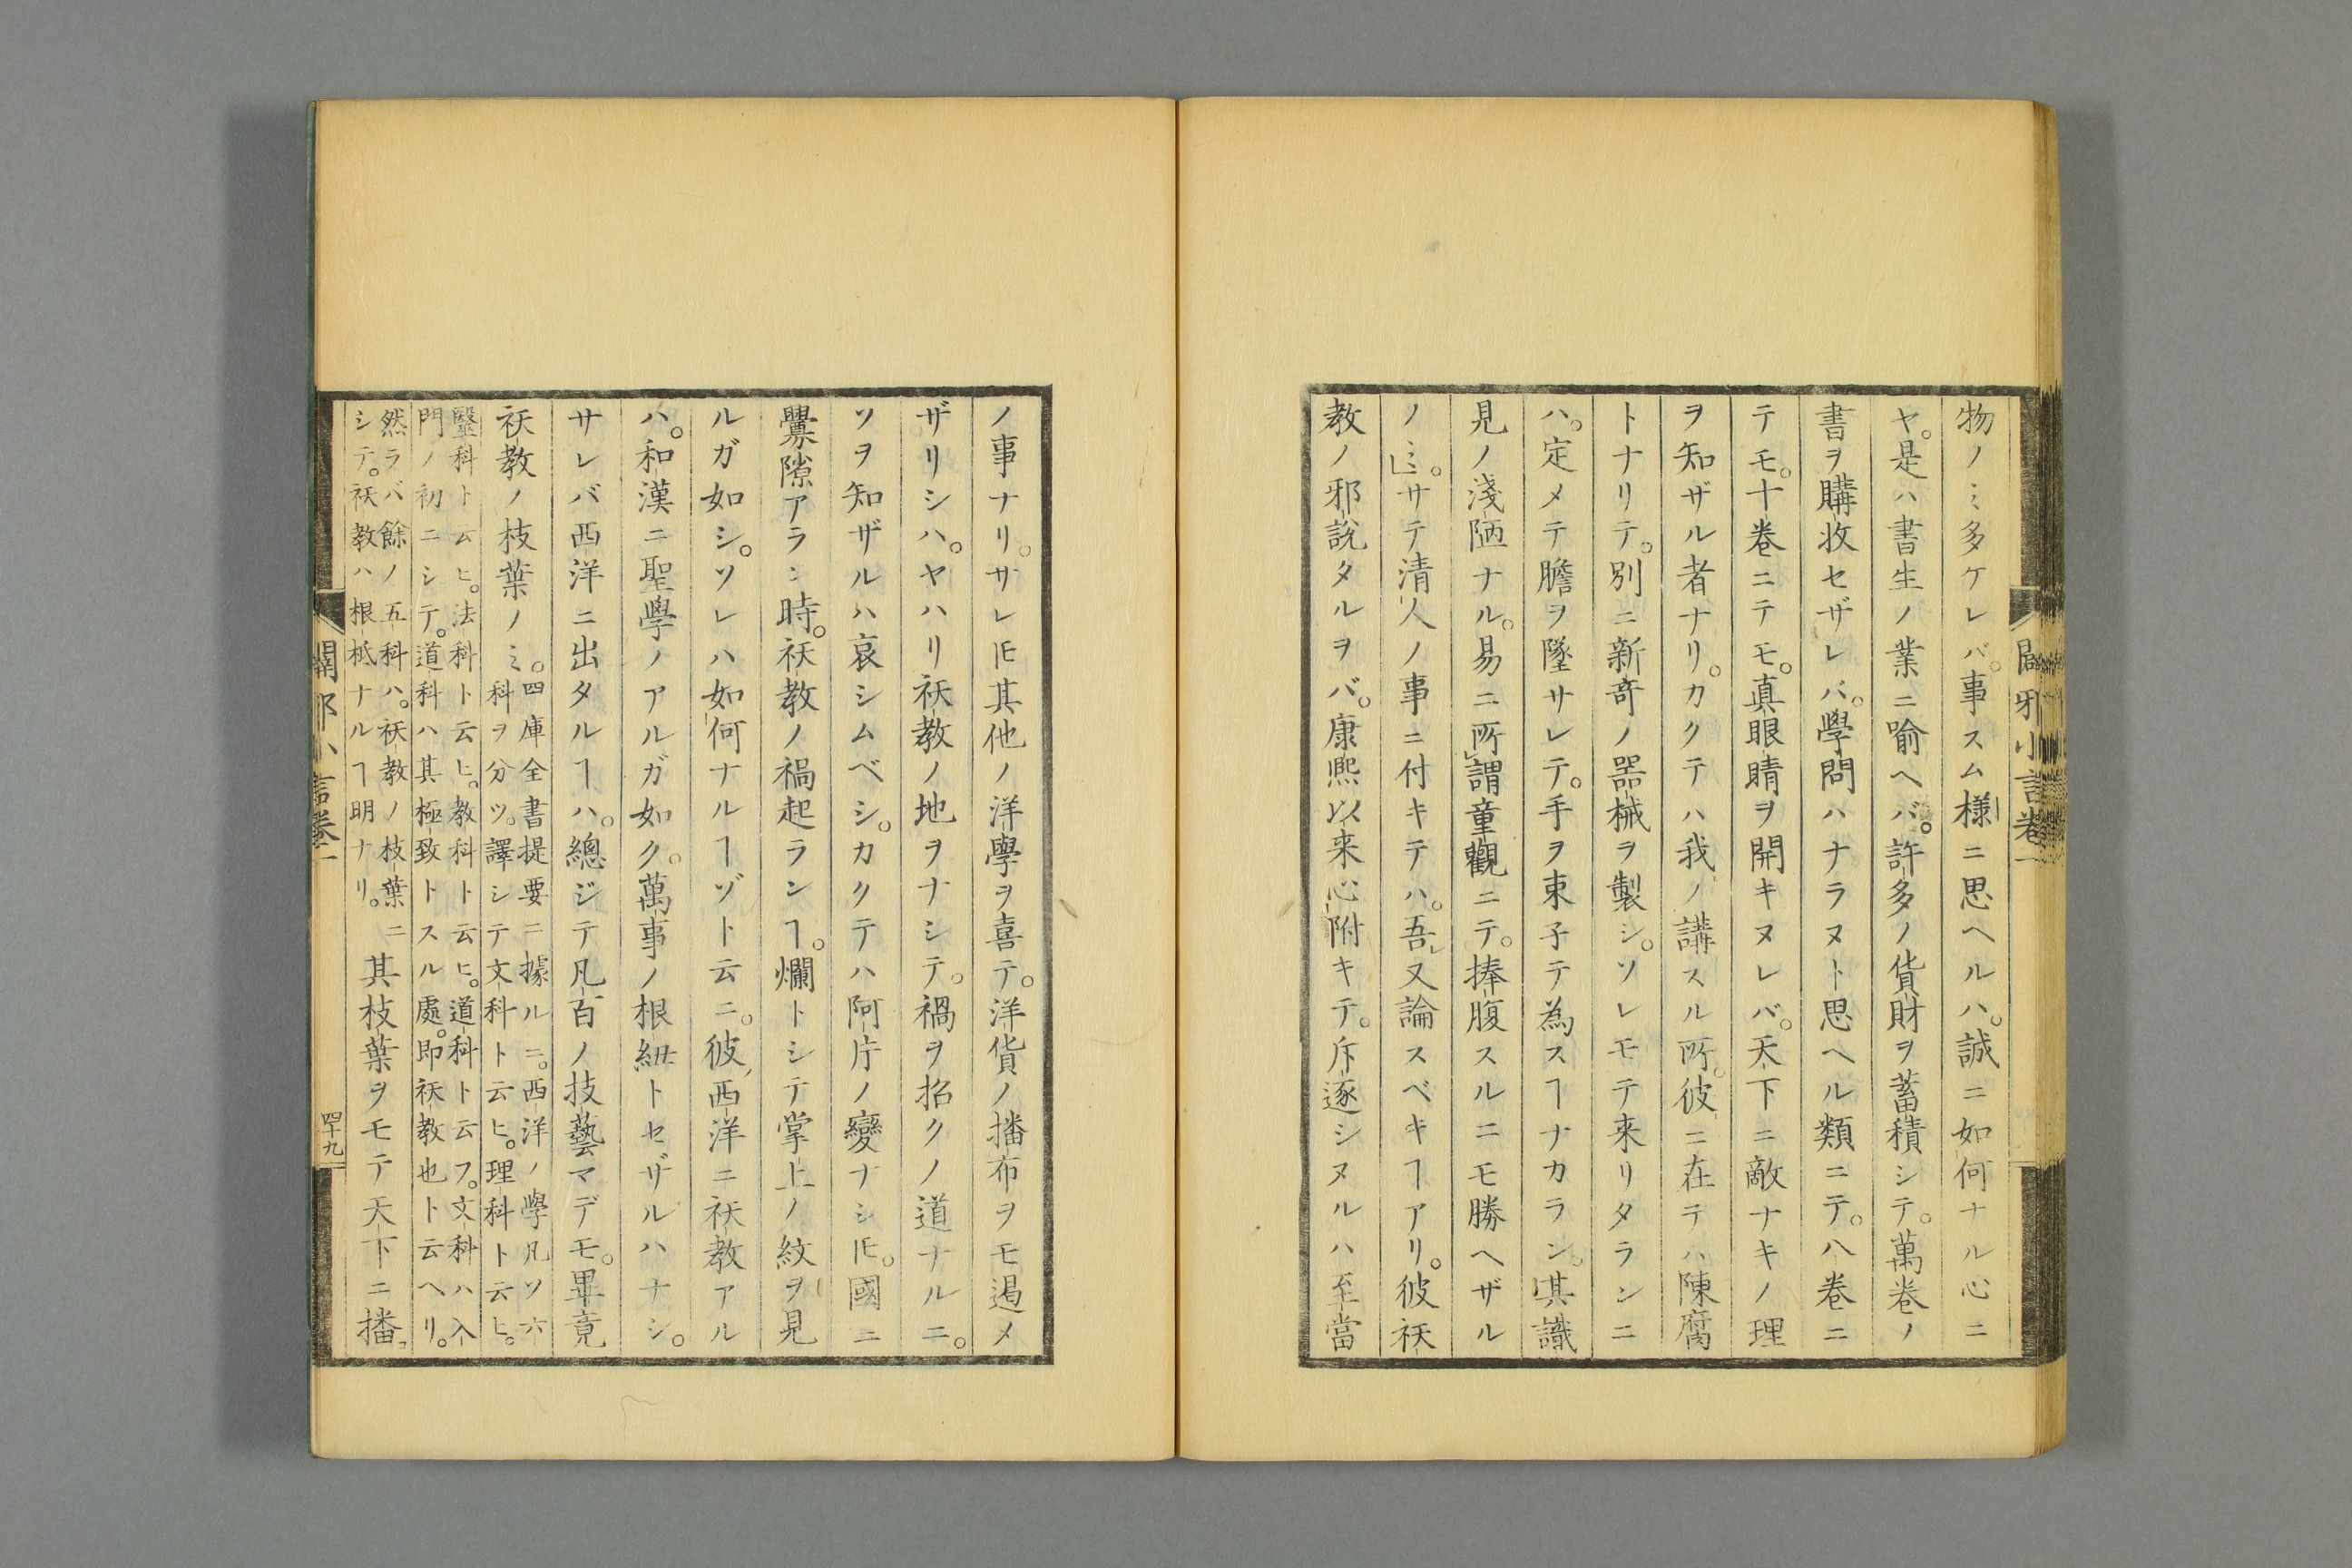 物ノミ多ケレバ。事スム様ニ思ヘルハ。誠ニ如何ナル心ニ
ヤ。是ハ書生ノ業ニ喩ヘバ。許多ノ貨財ヲ蓄積シテ。萬巻ノ
書ヲ購收セザレバ。學問ハナラヌト思ヘル類ニテ。八巻ニ
テモ。十巻ニテモ。真眼睛ヲ開キヌレバ。天下ニ敵ナキノ理
ヲ知ザル者ナリ。カクテハ我ノ講スル所。彼ニ在テハ陳腐
トナリテ。別ニ新奇ノ器械ヲ製シ。ソレモテ来リタランニ
ハ。定メテ膽ヲ墜サレテ。手ヲ束子テ為スヿナカラン。其識
見ノ淺陋ナル。易ニ所謂童觀ニテ。捧腹スルニモ勝ヘザル
ノミ。」サテ清人ノ事ニ付キテハ。吾又論スベキヿアリ。彼祅
教ノ邪説タルヲバ。康熙以来心附キテ。斥逐シヌルハ至當
ノ事ナリ。サレ𪜈其他ノ洋學ヲ喜テ。洋貨ノ播布ヲモ遏メ
ザリシハ。ヤハリ祅教ノ地ヲナシテ。禍ヲ招クノ道ナルニ。
ソヲ知ザルハ哀シムベシ。カクテハ阿片ノ變ナシ𪜈。國ニ
釁隙アラン時。祅教ノ禍起ランヿ。爛トシテ掌上ノ紋ヲ見
ルガ如シ。ソレハ如何ナルヿゾト云ニ。彼西洋ニ祅教アル
ハ。和漢ニ聖學ノアルガ如ク。萬事ノ根紐トセザルハナシ。
サレバ西洋ニ出タルヿハ。總ジテ凡百ノ技藝マデモ。畢竟
祅教ノ枝葉ノミ。四庫全書提要ニ據ルニ。西洋ノ學凡ソ六
科ヲ分ツ。譯シテ文科ト云ヒ。理科ト云ヒ。
醫科ト云ヒ。法科ト云ヒ。教科ト云ヒ。道科ト云フ。文科ハ入
門ノ初ニシテ。道科ハ其極致トスル處。即祅教也ト云ヘリ。
然ラバ餘ノ五科ハ。祅教ノ枝葉ニ
シテ。祅教ハ根柢ナルヿ明ナリ。
其枝葉ヲモテ天下ニ播
闢邪小言巻一
四十九